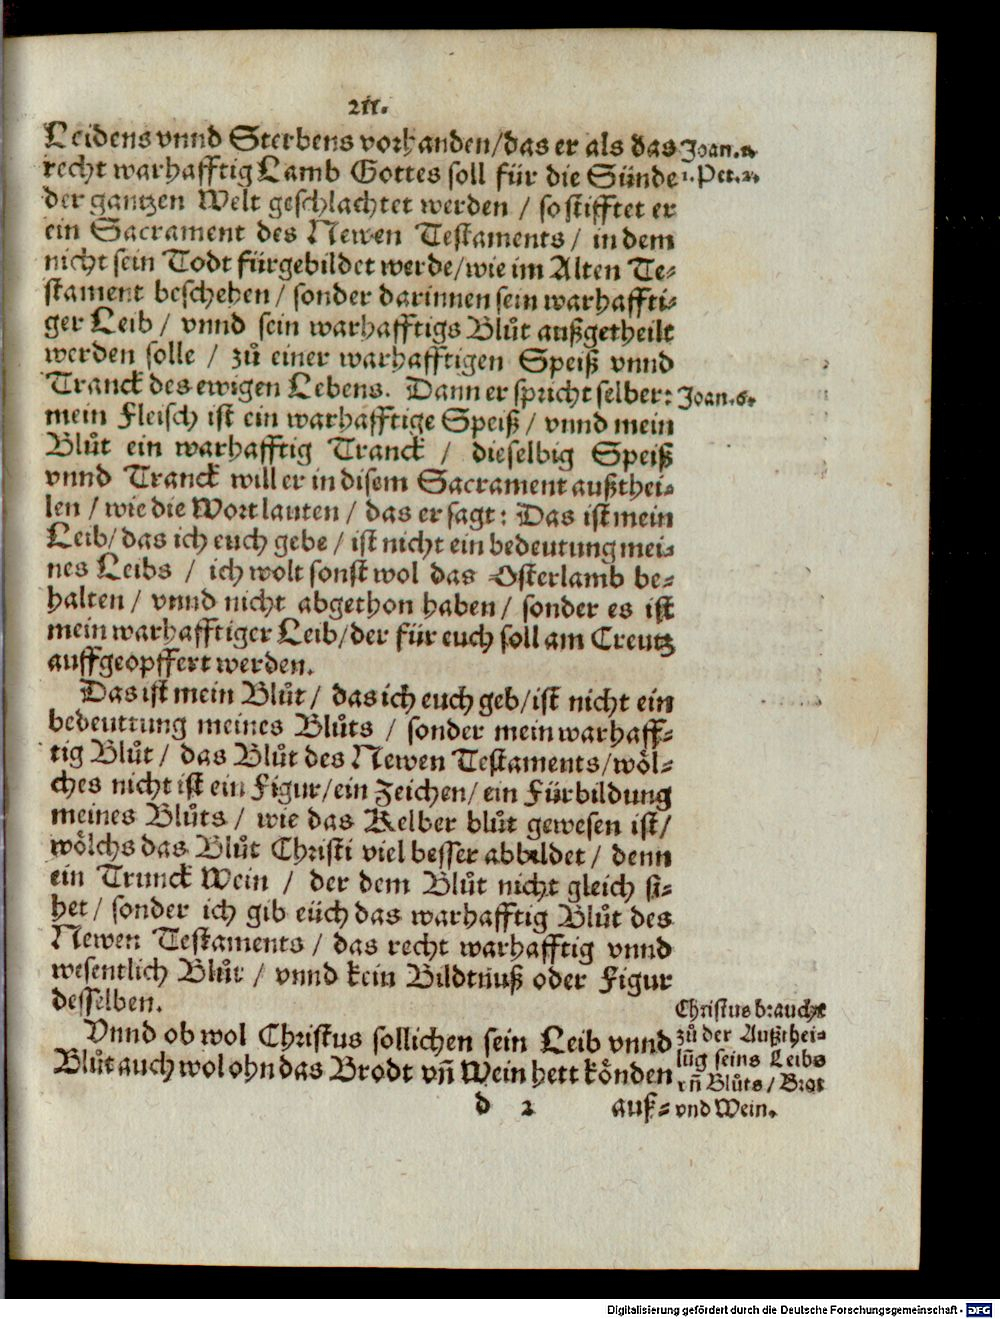 211.
Leidens vnnd Sterbens vorhanden/das er als das
Joan.1.
recht warhafftig Lamb Gottes soll für die Sünde
1.Pet.2.
der gantzen Welt geschlachtet werden / so stifftet er
ein Sacrament des Newen Testaments / in dem
nicht sein Todt fürgebildet werde/wie im Alten Te-
stament beschehen / sonder darinnen sein warhaffti-
ger Leib / vnnd sein warhafftigs Blůt außgetheilt
werden solle / zů einer warhafftigen Speiß vnnd
Tranck des ewigen Lebens. Dann er spricht selber:
Joan.6.
mein Fleisch ist ein warhafftige Speiß / vnnd mein
Blůt ein warhafftig Tranck / dieselbig Speiß
vnnd Tranck will er in disem Sacrament außthei-
len / wie die Wort lauten / das er sagt: Das ist mein
Leib/das ich euch gebe / ist nicht ein bedeutung mei-
nes Leibs / ich wolt sonst wol das Osterlamb be-
halten / vnnd nicht abgethon haben / sonder es ist
mein warhafftiger Leib/der für euch soll am Creutz
auffgeopffert werden.
Das ist mein Blůt / das ich euch geb/ist nicht ein
bedeuttung meines Blůts / sonder mein warhaff-
tig Blůt / das Blůt des Newen Testaments/wöl-
ches nicht ist ein Figur/ein Zeichen/ein Fürbildung
meines Blůts / wie das Kelber blůt gewesen ist/
wölchs das Blůt Christi viel besser abbildet / denn
ein Trunck Wein / der dem Blůt nicht gleich si-
het / sonder ich gib eüch das warhafftig Blůt des
Newen Testaments / das recht warhafftig vnnd
wesentlich Blůt / vnnd kein Bildtnuß oder Figur
desselben.
Vnnd ob wol Christus sollichen sein Leib vnnd
Blůt auch wol ohn das Brodt vñ Wein hett könden
Christus braucht
zů der Außthei-
lũg seins Leibs
vñ Blůts / Brot
vnd Wein.
d 2 auß-
Digitalisierung gefördert durch die Deutsche Forschungsgemeinschaft - DFG